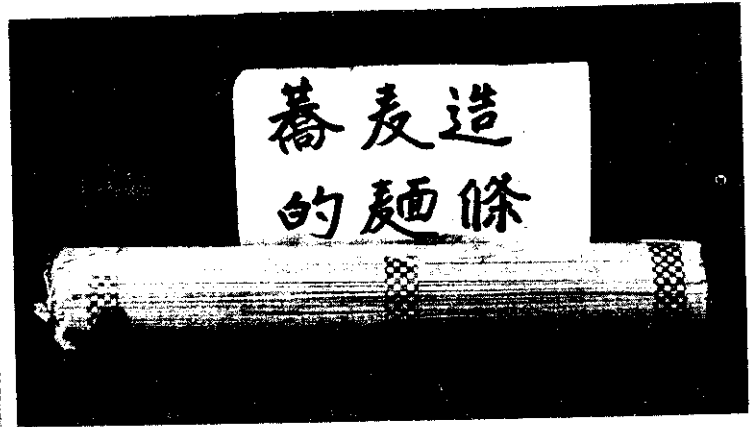 蕎麦造
的麺條